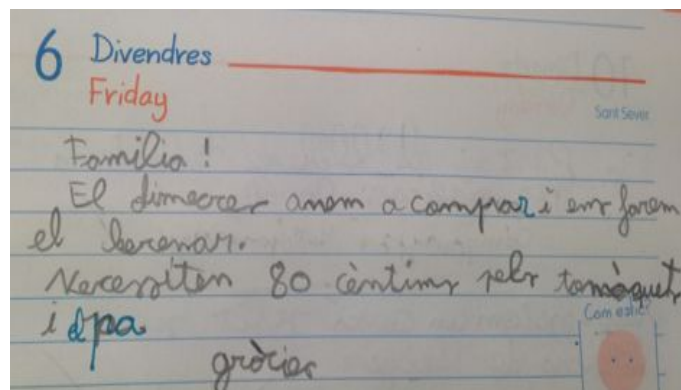 6 Divendres
Friday
Sant Sever
Familia!
El dimecres anem a comprar i ens farem
el berenar.
Necessiten 80 cèntims pels tomàquets
i el pa
Com estic?
gràcies